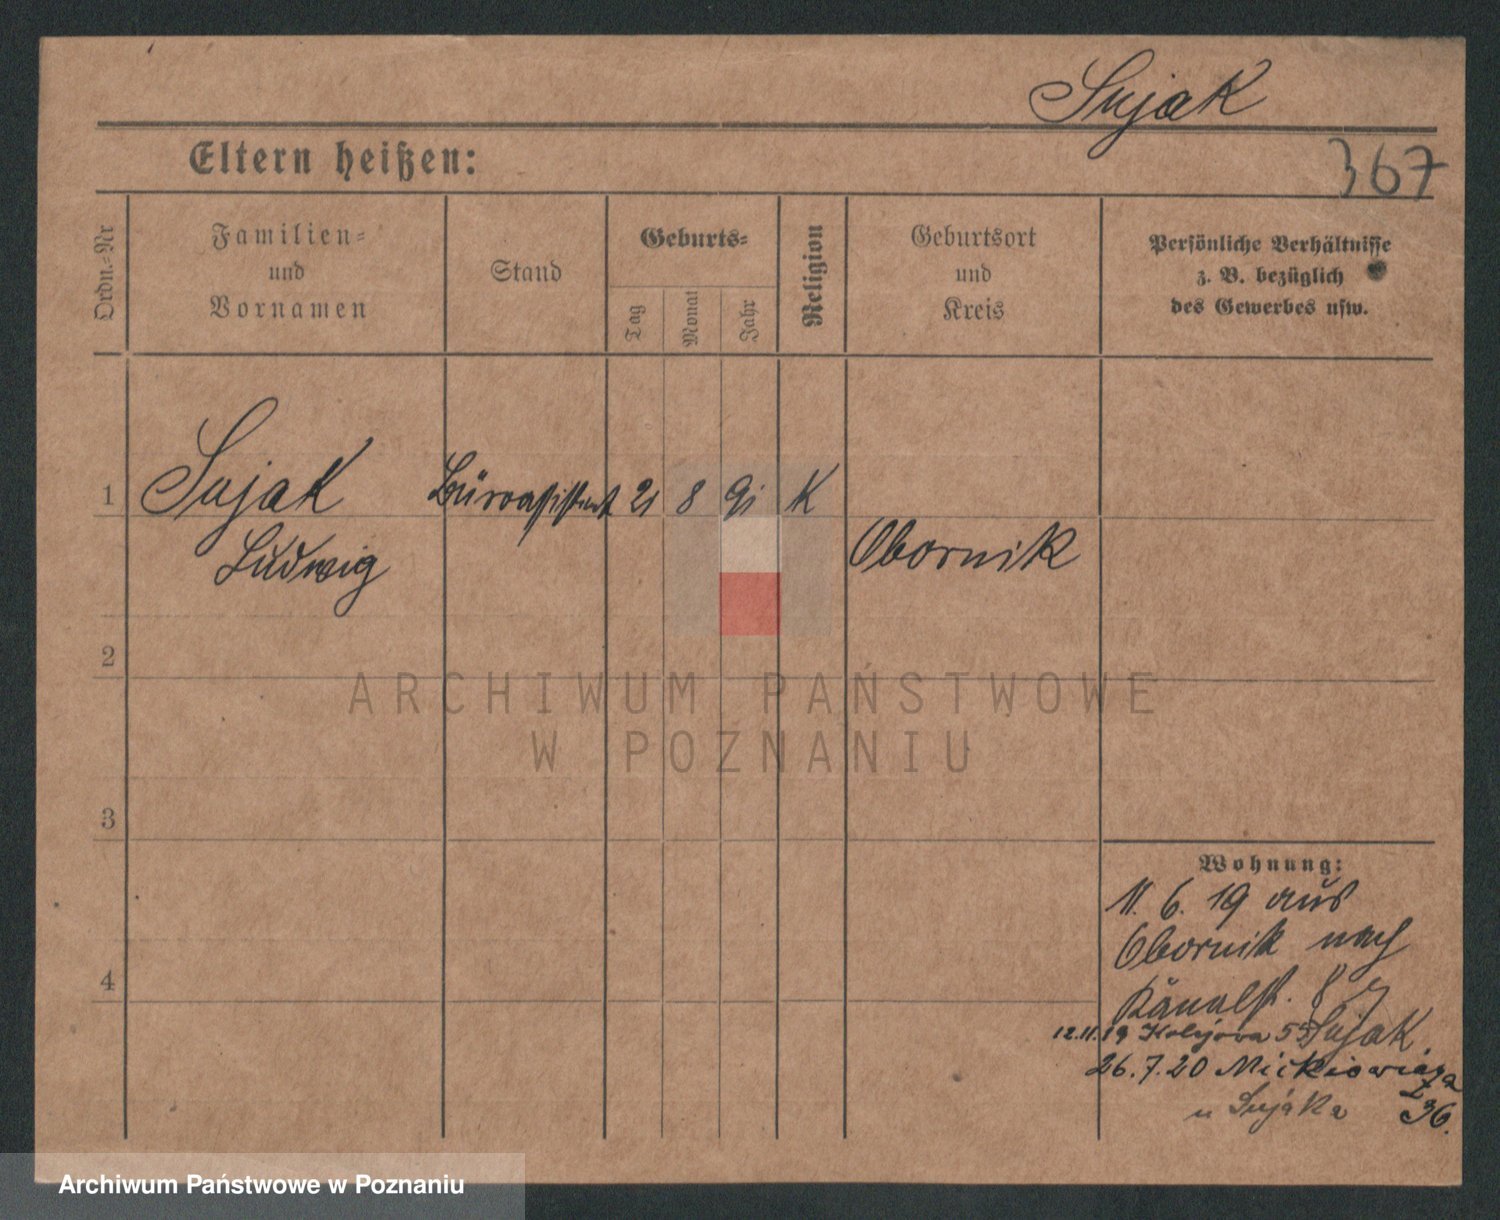 Sujak
Eltern heißen:
367
Ordn.=Nr
Familien=
und
Vornamen
Stand
Geburts=
Tag
Monat
Jahr
Religion
Geburtsort
und
Kreis
Persönliche Verhältnisse
z. B. bezüglich
des Gewerbes usw.
1
Sujak
Büroassistent
21
8
91
K
Ludwig
Obornik
2
ARCHIWUM PAŃSTWOWE
W POZNANIU
3
Wohnung:
11. 6. 19 aus
Obornik nach
4
Kanalst. 8
12.11.19 Kolejowa 55 Sujak
26.7.20 Mickiewicza
u Sujaka 36.
Archiwum Państwowe w Poznaniu